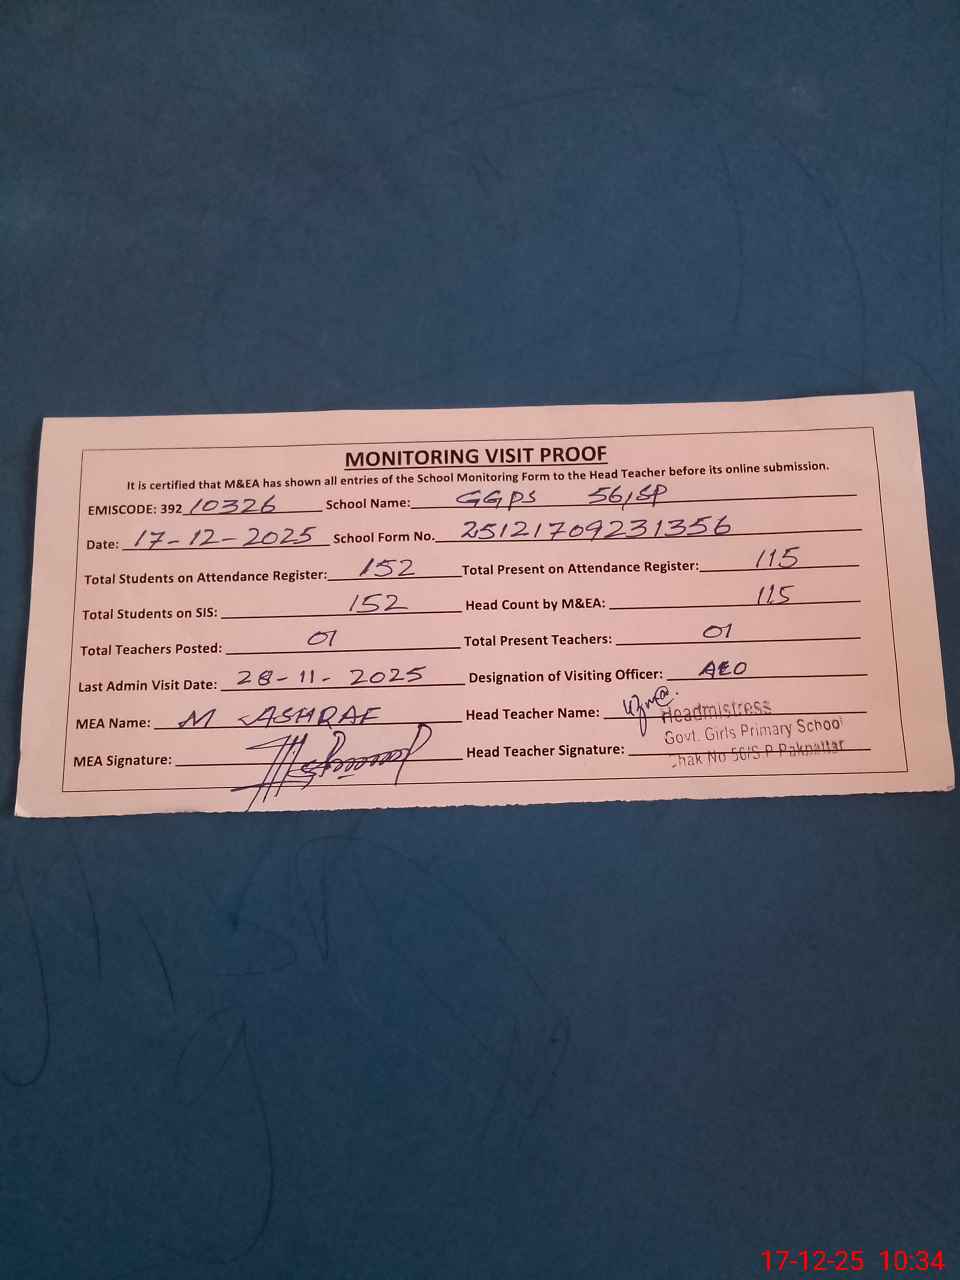 MONITORING VISIT PROOF
It is certified that M&EA has shown all entries of the School Monitoring Form to the Head Teacher before its online submission.
EMISCODE: 392 10326 School Name: GGPS 56/SP
Date: 17-12-2025 School Form No. 25121709231356
Total Students on Attendance Register: 152 Total Present on Attendance Register: 115
Total Students on SIS: 152 Head Count by M&EA: 115
Total Teachers Posted: 01 Total Present Teachers: 01
Last Admin Visit Date: 28-11-2025 Designation of Visiting Officer: AEO
MEA Name: M ASHRAF Head Teacher Name:
Headmistress
Govt. Girls Primary School
MEA Signature: Head Teacher Signature:
Chak No 56/S.P Pakpattan
17-12-25 10:34